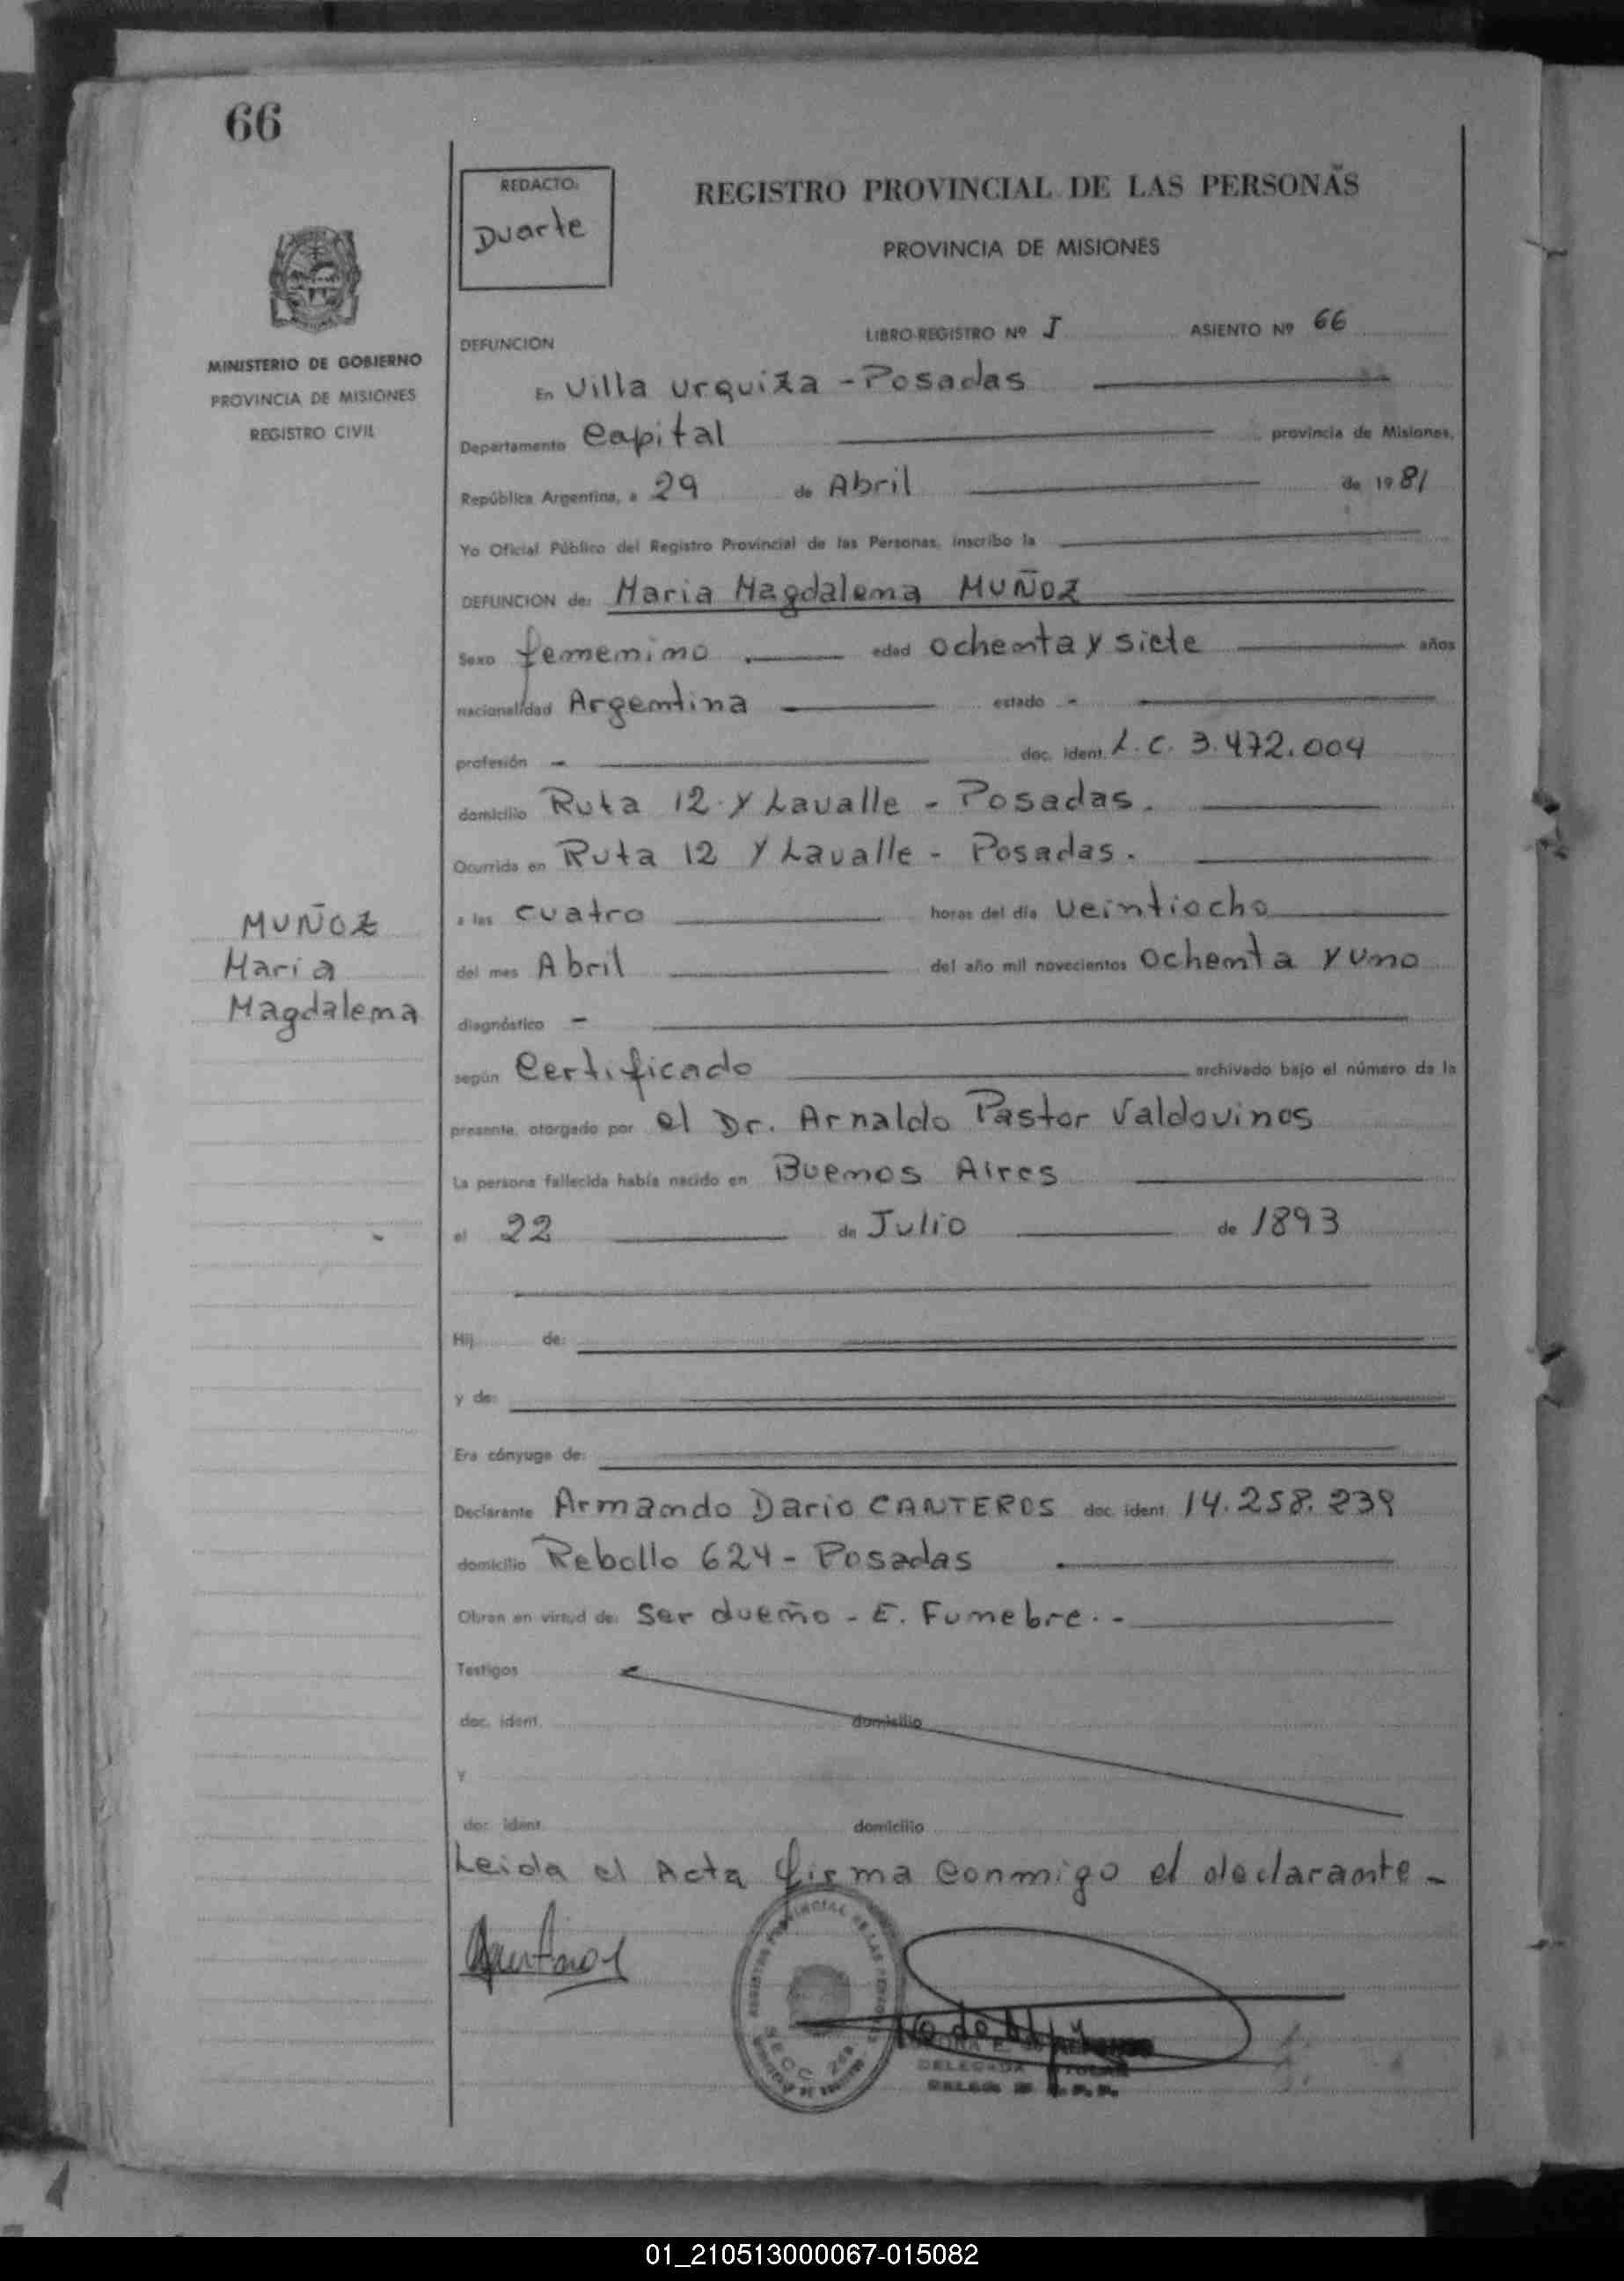 66
REDACTO:
Duarte
REGISTRO PROVINCIAL DE LAS PERSONAS
PROVINCIA DE MISIONES
MINISTERIO DE GOBIERNO
PROVINCIA DE MISIONES
REGISTRO CIVIL
DEFUNCION LIBRO-REGISTRO Nº I ASIENTO Nº 66
En Villa Urquiza - Posadas
Departamento Capital provincia de Misiones,
República Argentina, a 29 de Abril de 1981
Yo Oficial Público del Registro Provincial de las Personas, inscribo la
DEFUNCION de: Maria Magdalena MUÑOZ
Sexo femenino edad ochenta y siete años
nacionalidad Argentina estado -
profesión - doc. ident. L.C. 3.472.004
domicilio Ruta 12 y Lavalle - Posadas.
Ocurrida en Ruta 12 y Lavalle - Posadas.
MUÑOZ
Maria
Magdalena
a las cuatro horas del día veintiocho
del mes Abril del año mil novecientos ochenta y uno
diagnóstico -
según Certificado archivado bajo el número de la
presente, otorgado por el Dr. Arnaldo Pastor Valdovinos
La persona fallecida había nacido en Buenos Aires
el 22 de Julio de 1893
Hij de:
y de:
Era cónyuge de:
Declarante Armando Dario CANTEROS doc. ident. 14.258.239
domicilio Rebollo 624 - Posadas
Obran en virtud de: Ser dueño - E. Funebre. -
Testigos
doc. ident. domicilio
Y
doc. ident. domicilio
Leida el Acta firma conmigo el declarante -
01_210513000067-015082